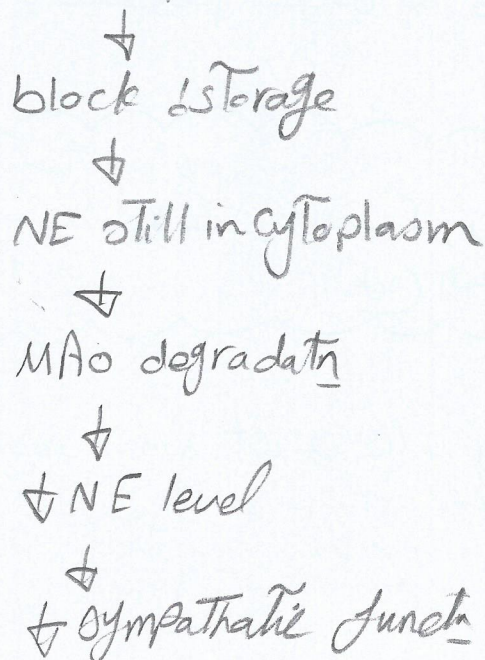 ↓
block storage
↓
NE still in cytoplasm
↓
MAO degradatn
↓
↓ NE level
↓
↓ sympathatic functn